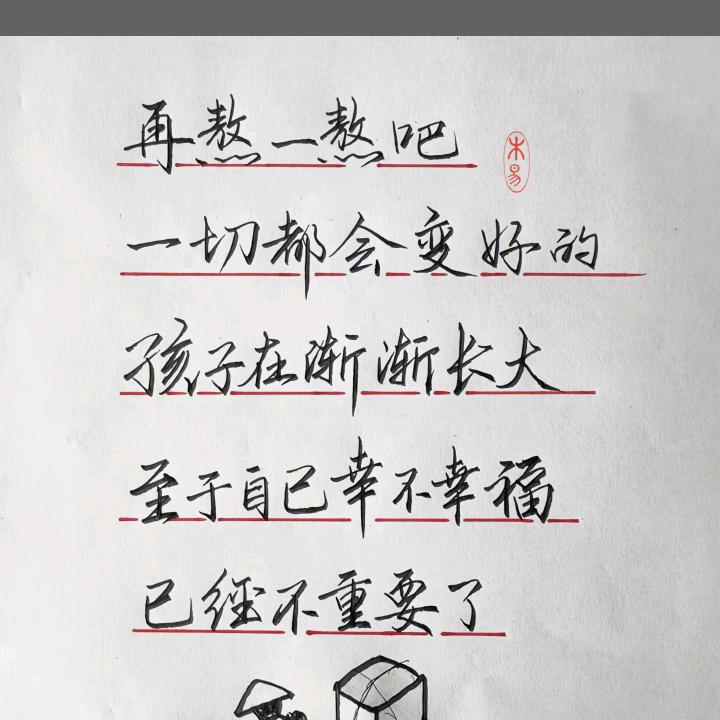 再熬一熬吧
木易
一切都会变好的
孩子在渐渐长大
至于自己幸不幸福
已经不重要了